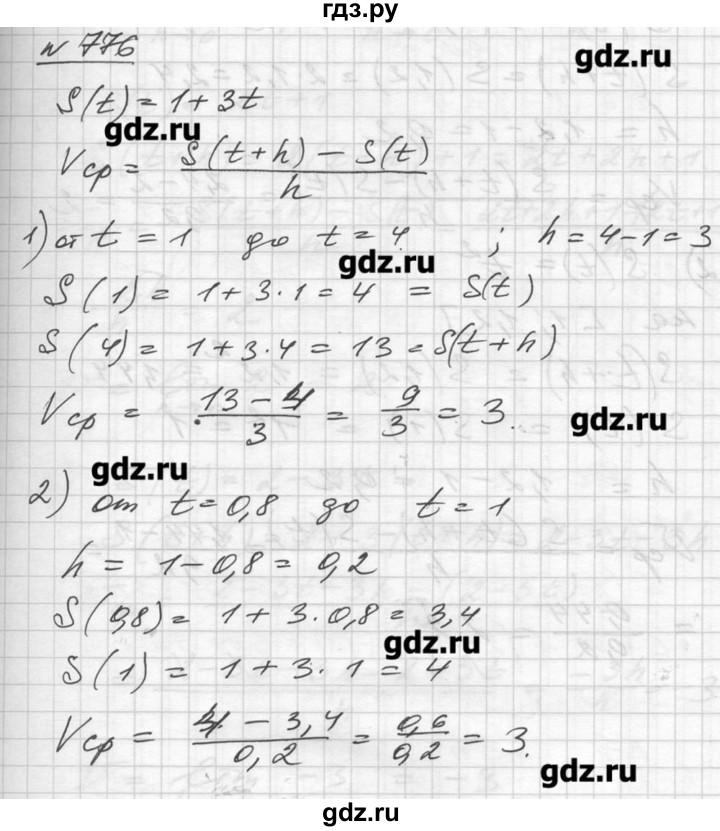 гдз.ру
№ 776
gdz.ru
S(t) = 1 + 3t
gdz.ru
Vср = (S(t+h) − S(t)) / h
1) от t = 1 до t = 4 ; h = 4−1 = 3
gdz.ru
S(1) = 1 + 3·1 = 4 = S(t)
S(4) = 1 + 3·4 = 13 = S(t+h)
Vср = (13 − 4) / 3 = 9/3 = 3.
gdz.ru
gdz.ru
2) от t = 0,8 до t = 1
h = 1 − 0,8 = 0,2
S(0,8) = 1 + 3·0,8 = 3,4
gdz.ru
S(1) = 1 + 3·1 = 4
Vср = (4 − 3,4) / 0,2 = 0,6/0,2 = 3.
gdz.ru
gdz.ru